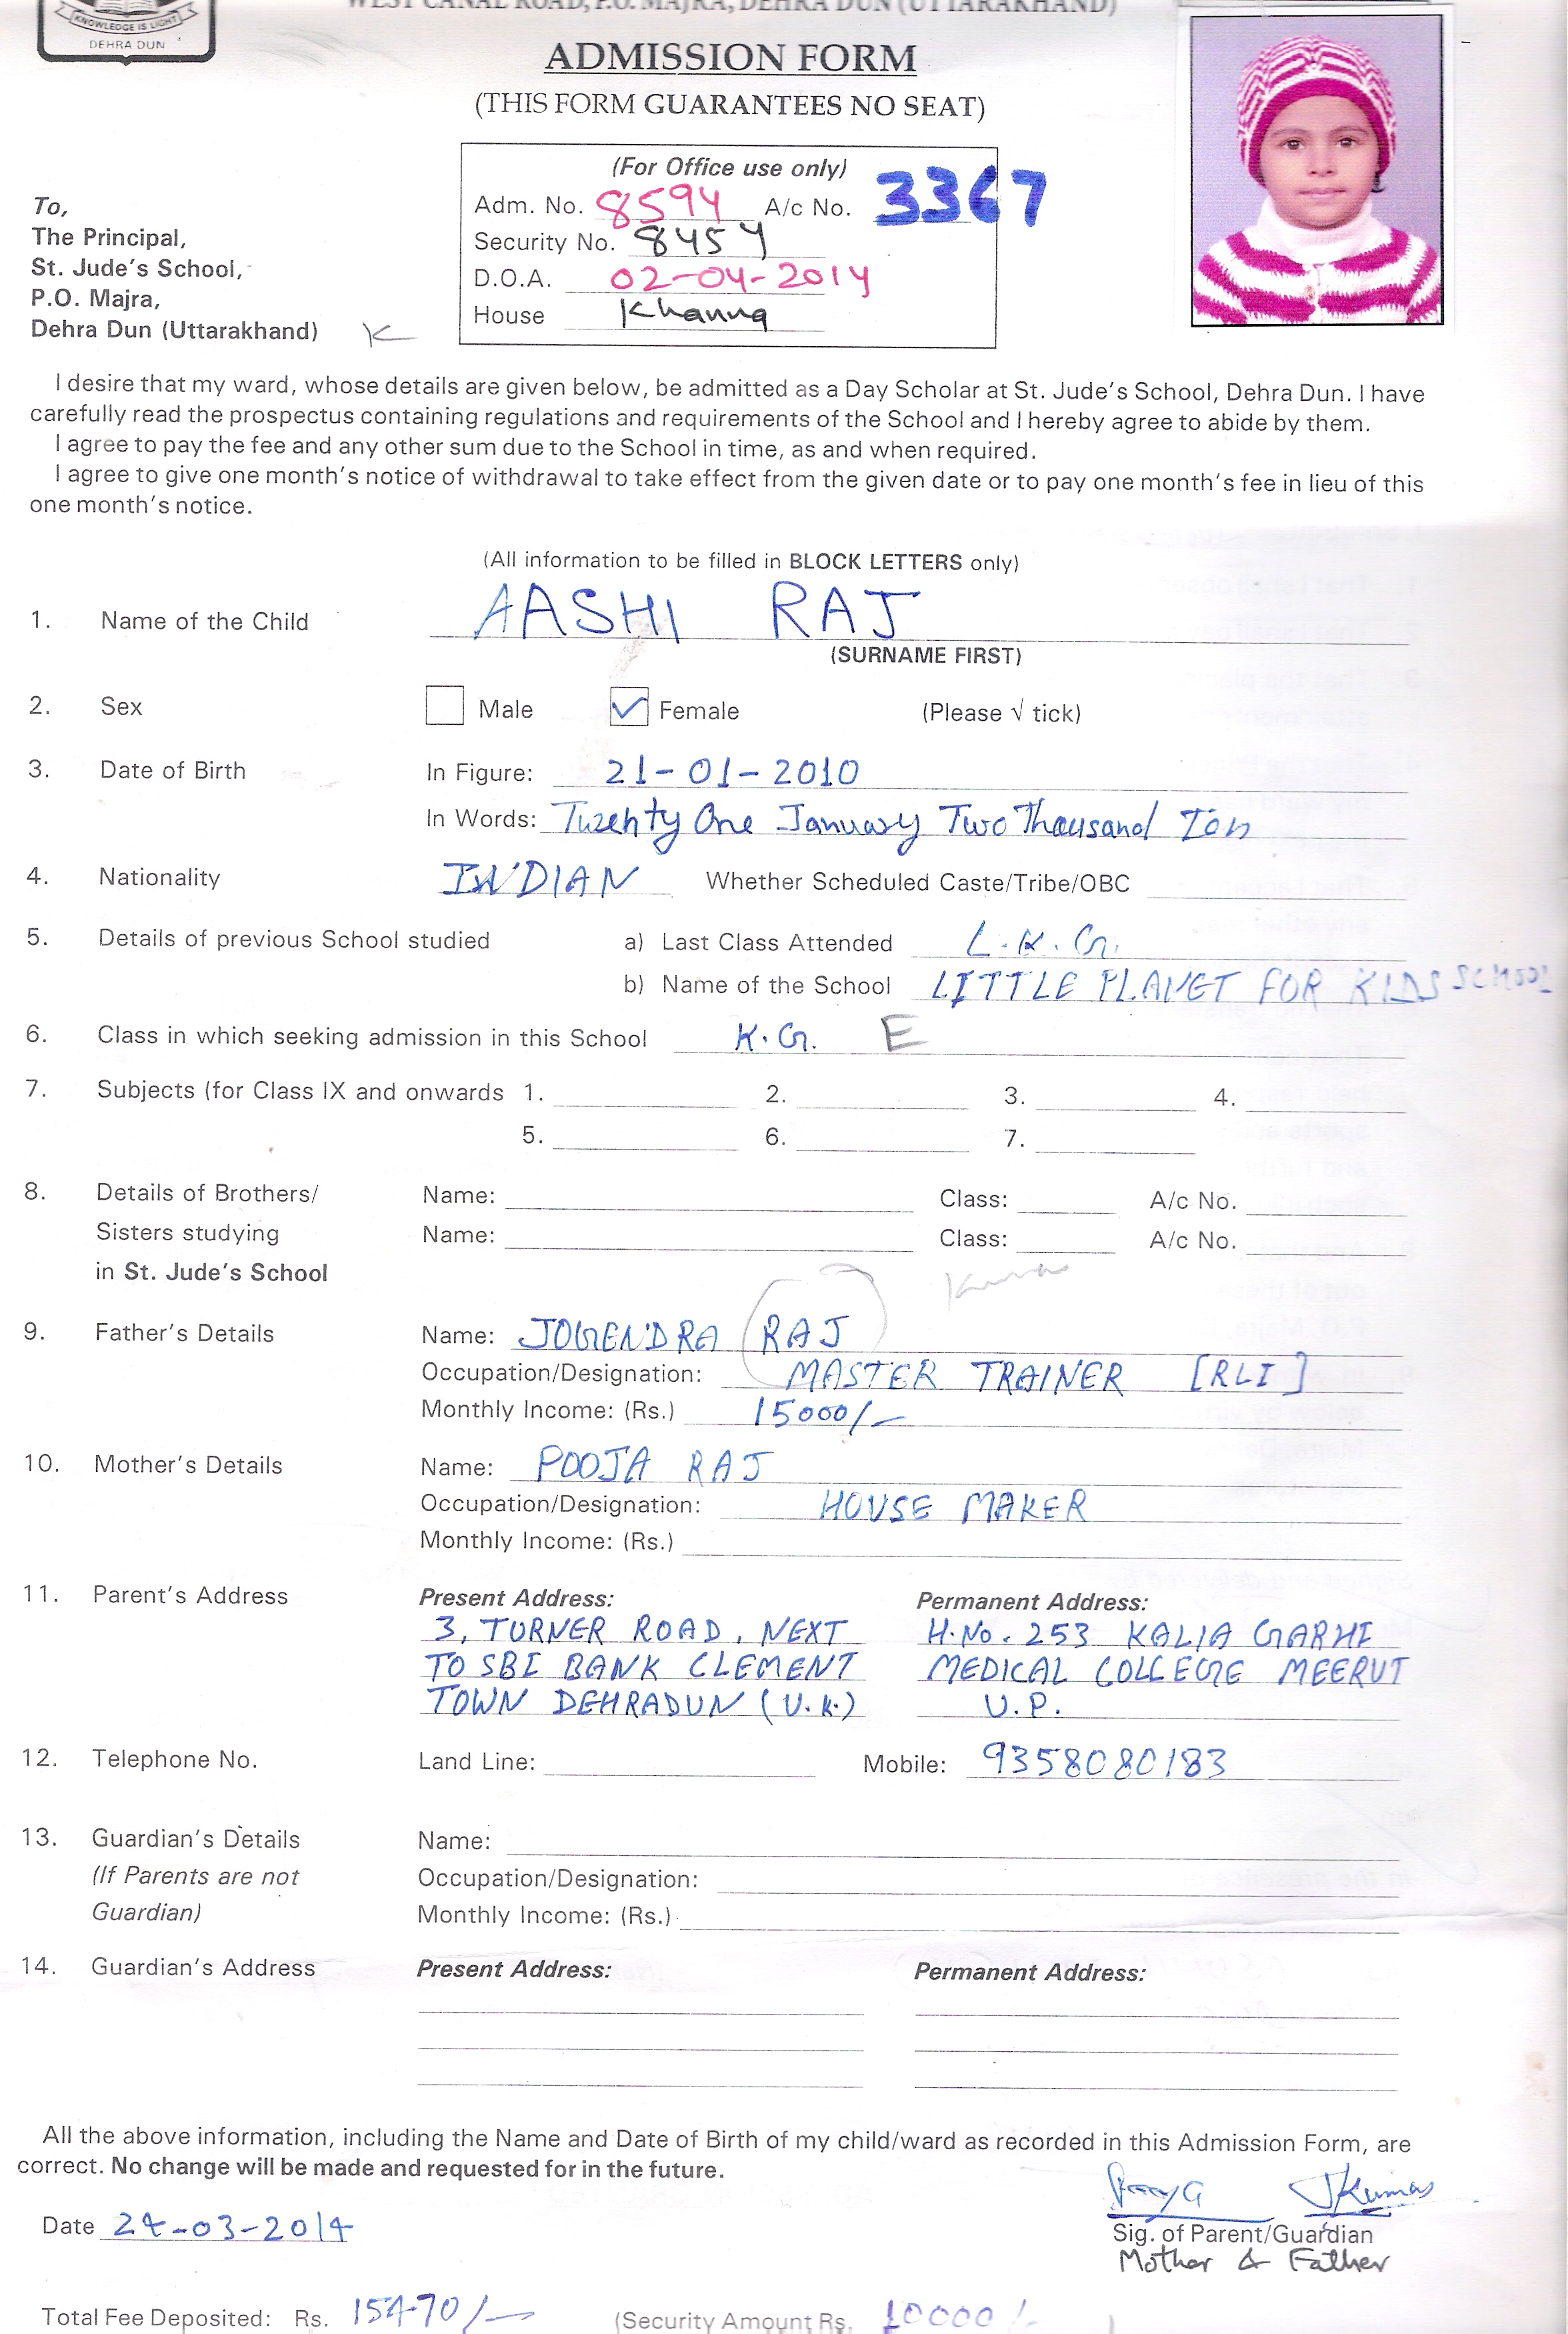 KNOWLEDGE IS LIGHT
DEHRA DUN
WEST CANAL ROAD, P.O. MAJRA, DEHRA DUN (UTTARAKHAND)
ADMISSION FORM
(THIS FORM GUARANTEES NO SEAT)
(For Office use only)
Adm. No. 8594 A/c No. 3367
Security No. 8454
D.O.A. 02-04-2014
House Khanna
To,
The Principal,
St. Jude's School,
P.O. Majra,
Dehra Dun (Uttarakhand) K
I desire that my ward, whose details are given below, be admitted as a Day Scholar at St. Jude's School, Dehra Dun. I have
carefully read the prospectus containing regulations and requirements of the School and I hereby agree to abide by them.
I agree to pay the fee and any other sum due to the School in time, as and when required.
I agree to give one month's notice of withdrawal to take effect from the given date or to pay one month's fee in lieu of this
one month's notice.
(All information to be filled in BLOCK LETTERS only)
1. Name of the Child AASHI RAJ
(SURNAME FIRST)
2. Sex Male Female (Please √ tick)
3. Date of Birth In Figure: 21-01-2010
In Words: Twenty One January Two Thousand Ten
4. Nationality INDIAN Whether Scheduled Caste/Tribe/OBC
5. Details of previous School studied a) Last Class Attended L.K.G.
b) Name of the School LITTLE PLANET FOR KIDS SCHOOL
6. Class in which seeking admission in this School K.G. E
7. Subjects (for Class IX and onwards 1. 2. 3. 4.
5. 6. 7.
8. Details of Brothers/ Name: Class: A/c No.
Sisters studying Name: Class: A/c No.
in St. Jude's School
9. Father's Details Name: JOGENDRA RAJ
Occupation/Designation: MASTER TRAINER [RLI]
Monthly Income: (Rs.) 15000/-
10. Mother's Details Name: POOJA RAJ
Occupation/Designation: HOUSE MAKER
Monthly Income: (Rs.)
11. Parent's Address Present Address: Permanent Address:
3, TURNER ROAD, NEXT H.No. 253 KALIA GARHI
TO SBI BANK CLEMENT MEDICAL COLLEGE MEERUT
TOWN DEHRADUN (U.K.) U.P.
12. Telephone No. Land Line: Mobile: 9358080183
13. Guardian's Details Name:
(If Parents are not Occupation/Designation:
Guardian) Monthly Income: (Rs.)
14. Guardian's Address Present Address: Permanent Address:
All the above information, including the Name and Date of Birth of my child/ward as recorded in this Admission Form, are
correct. No change will be made and requested for in the future.
JKumar
Date 24-03-2014
Sig. of Parent/Guardian
Mother & Father
Total Fee Deposited: Rs. 15470/- (Security Amount Rs. 10000/-